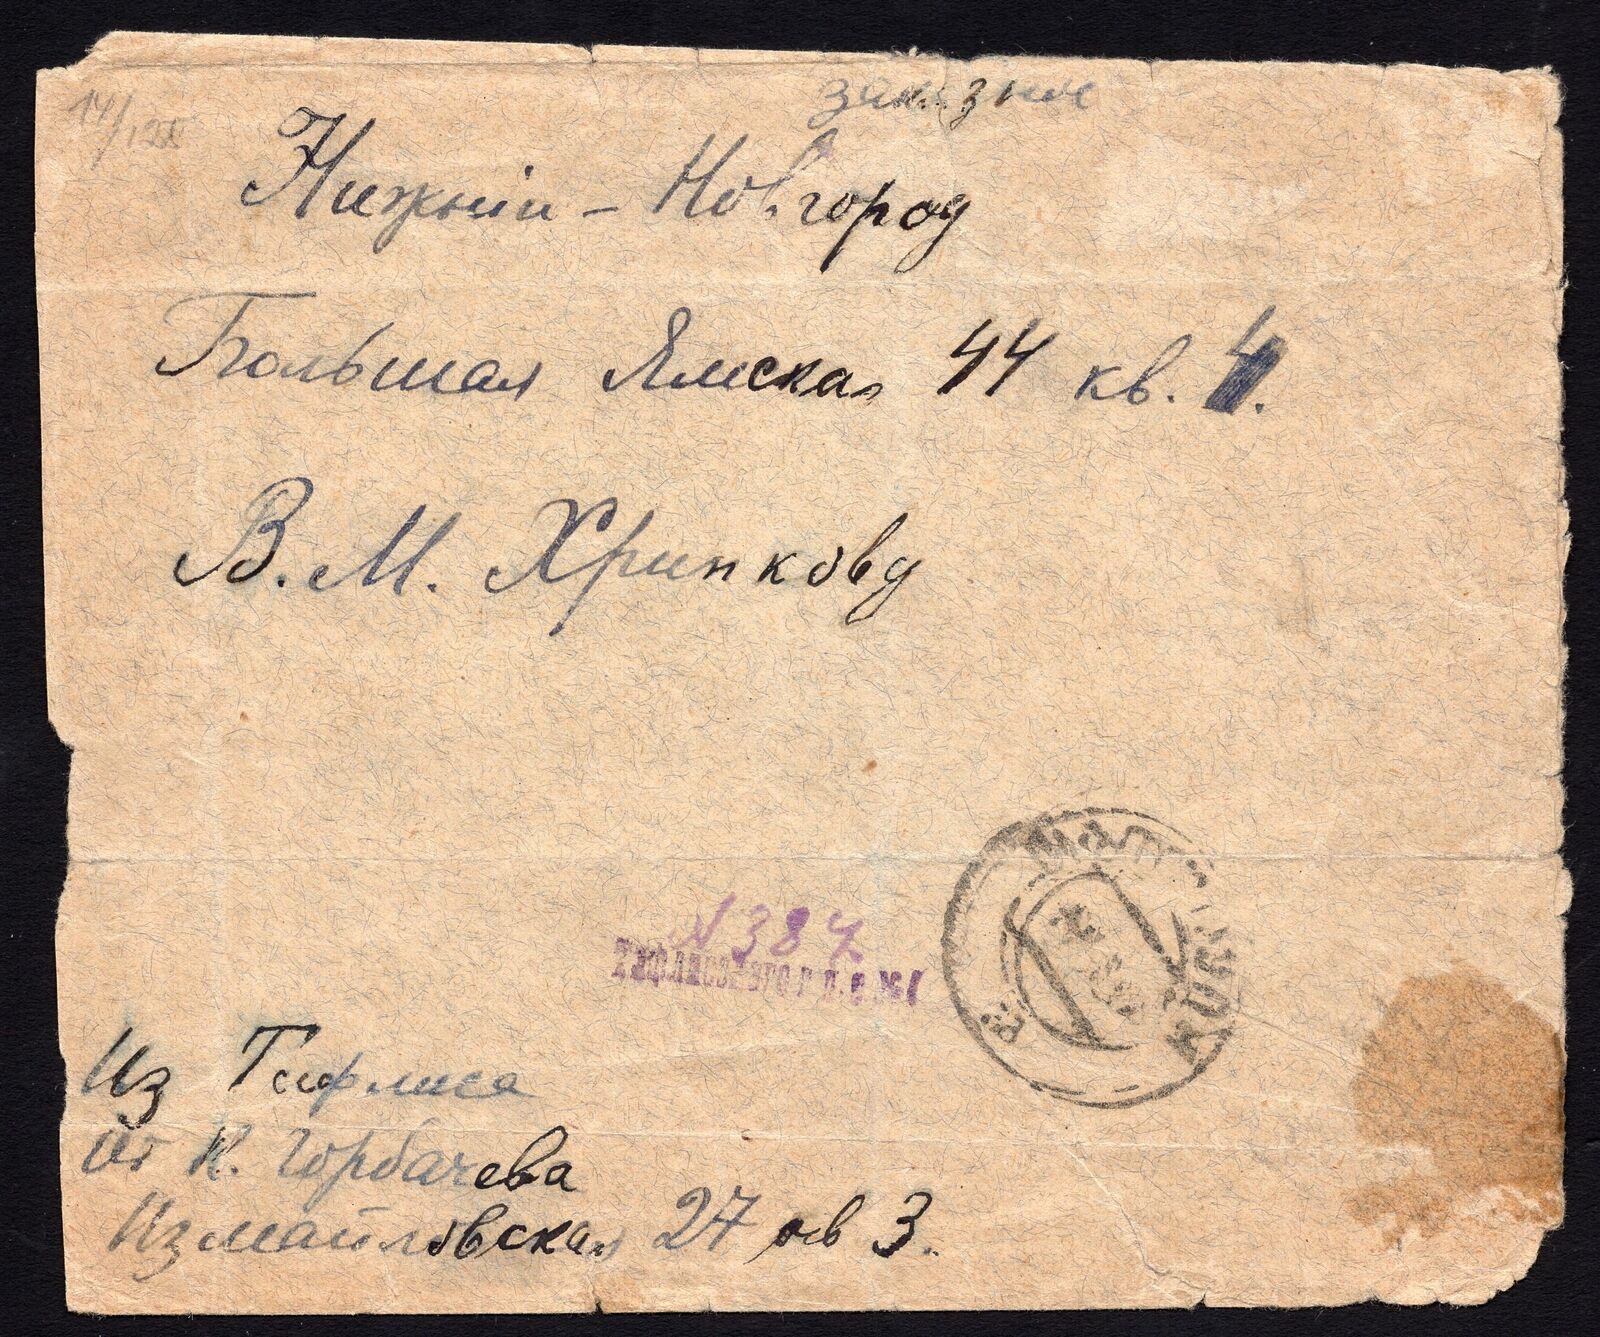 заказное
14/
Нижній - Новгород
Большая Ямская 44 кв. 4.
В. М. Хрипкову
№ 387
Тифлисскаго г. п. о №1
Из Тифлиса
от К. Горбачева
Измайловская 27 кв 3.